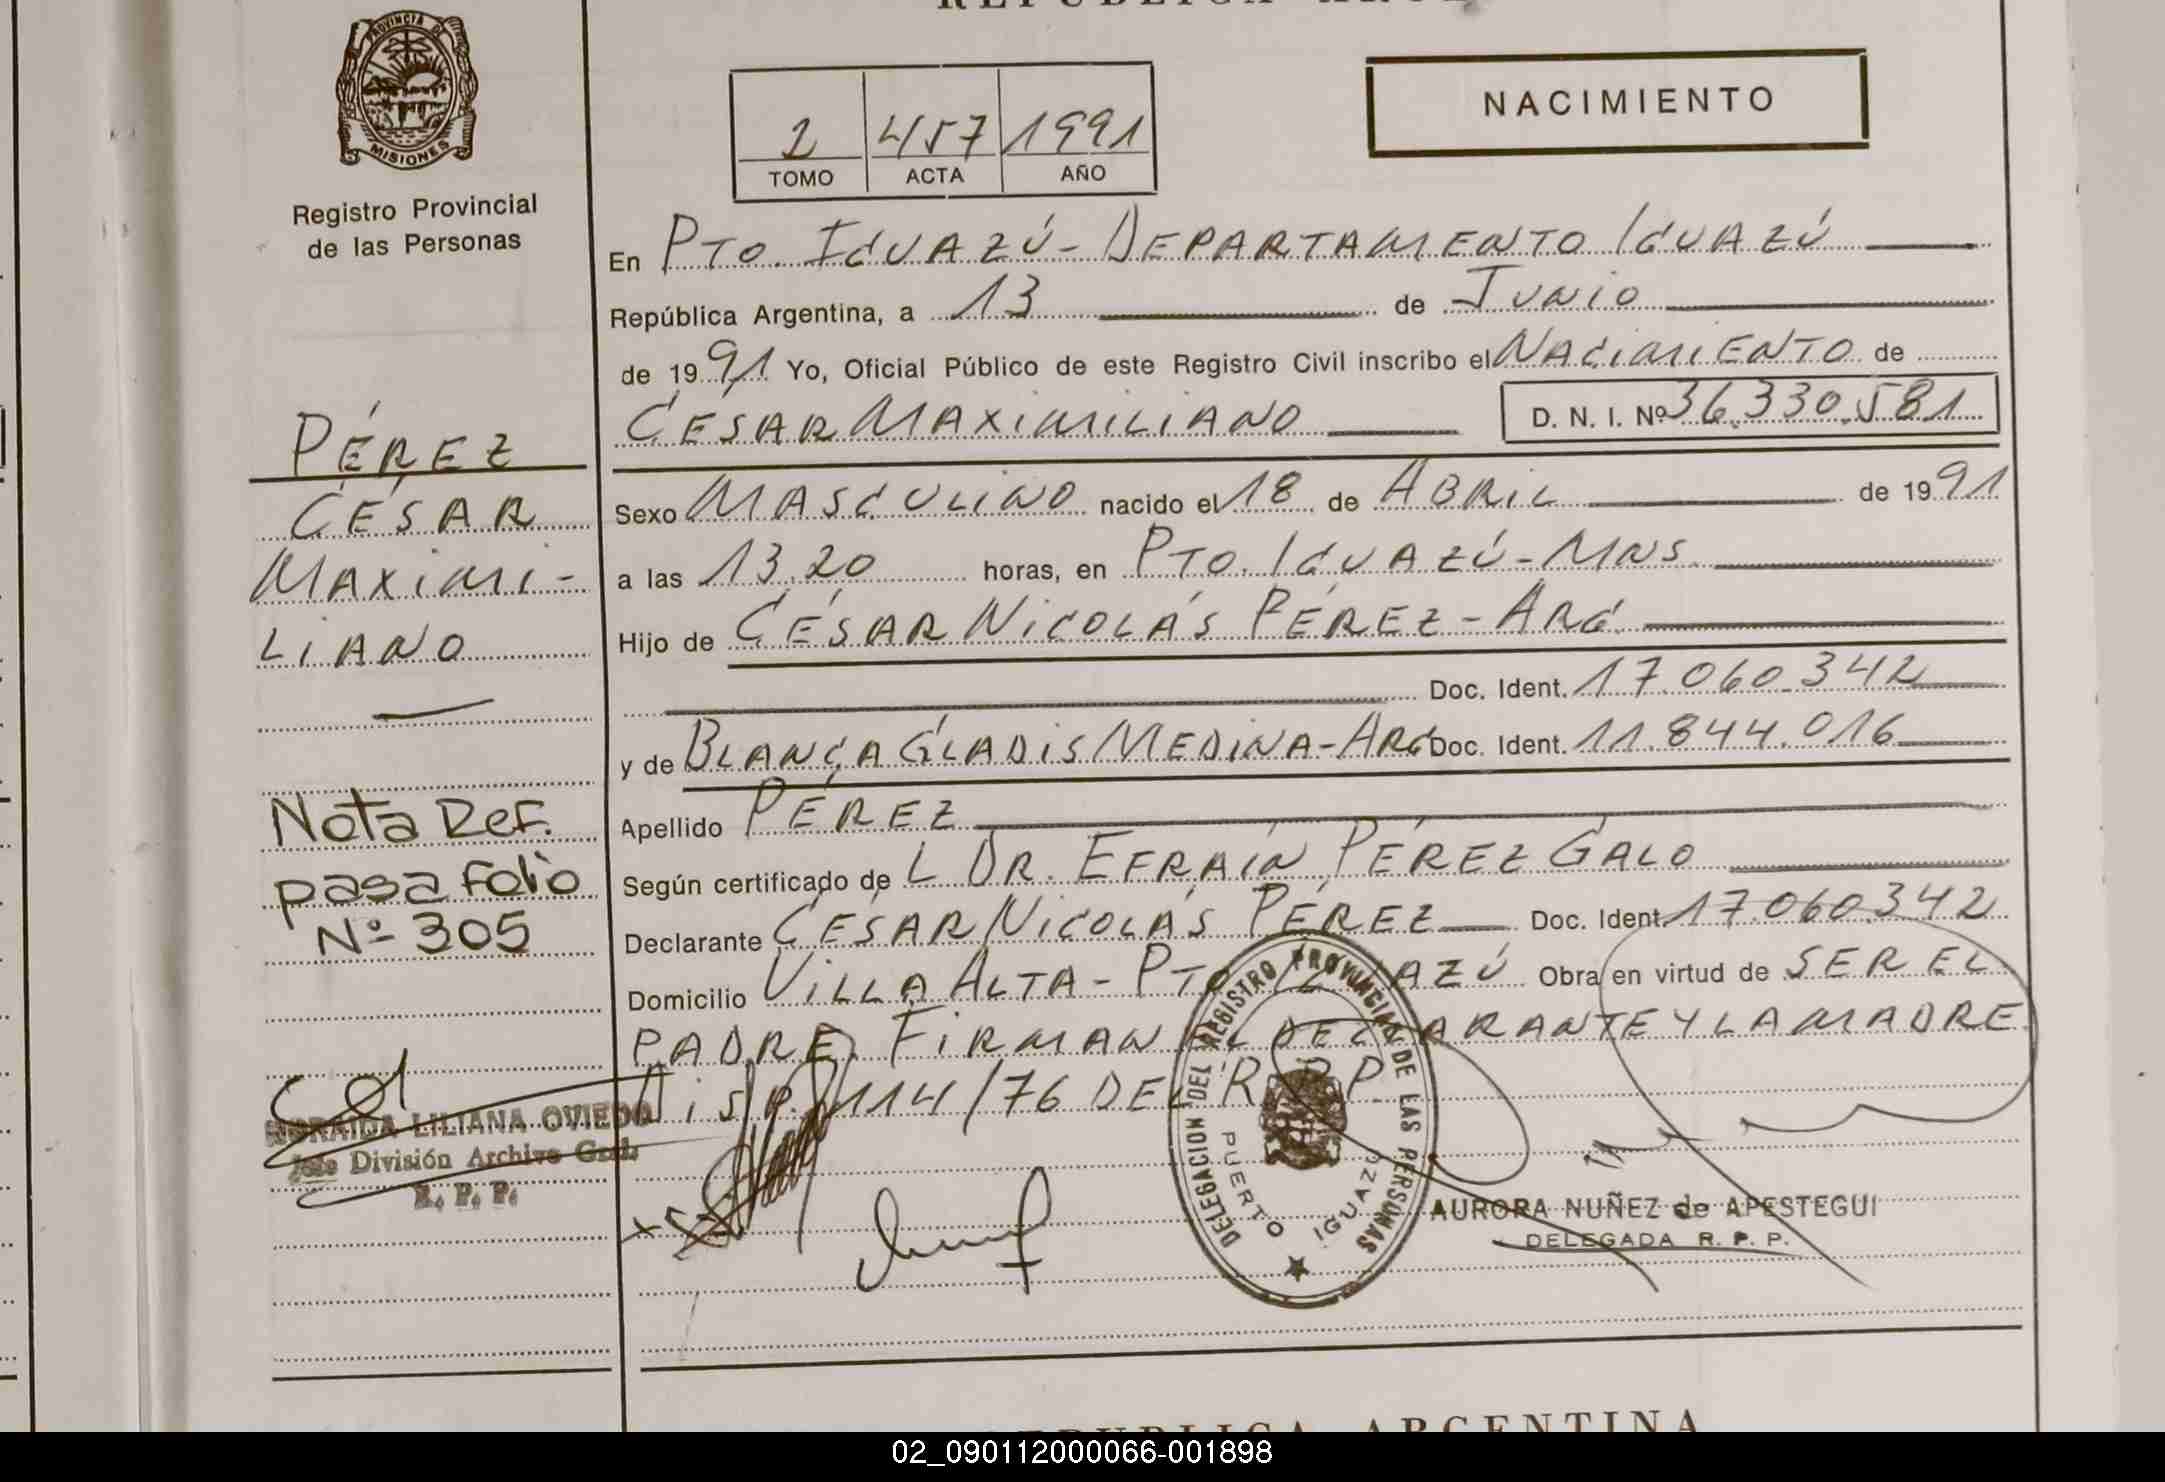 PROVINCIA DE
MISIONES
Registro Provincial
de las Personas
PÉREZ
CÉSAR
MAXIMI-
LIANO
Nota Ref.
pasa folio
Nº 305
LILIANA OVIEDO
Jefe División Archivo Gral.
R. P. P.
2 457 1991
TOMO ACTA AÑO
NACIMIENTO
En PTO. IGUAZÚ - DEPARTAMENTO IGUAZÚ
República Argentina, a 13 de JUNIO
de 1991 Yo, Oficial Público de este Registro Civil inscribo el NACIMIENTO de
CÉSAR MAXIMILIANO D. N. I. Nº 36.330.581
Sexo MASCULINO nacido el 18 de ABRIL de 1991
a las 13,20 horas, en PTO. IGUAZÚ - MNS.
Hijo de CÉSAR NICOLÁS PÉREZ - ARG.
Doc. Ident. 17.060.342
y de BLANCA GLADIS MEDINA - ARG Doc. Ident. 11.844.016
Apellido PÉREZ
Según certificado de L DR. EFRAÍN PÉREZ GALO
Declarante CÉSAR NICOLÁS PÉREZ Doc. Ident. 17.060.342
Domicilio VILLA ALTA - PTO IGUAZÚ Obra en virtud de SER EL
PADRE. FIRMAN EL DECLARANTE Y LA MADRE
DISP. 114/76 DEL R.P.P.
DELEGACION DEL REGISTRO PROVINCIAL DE LAS PERSONAS
PUERTO IGUAZU
AURORA NUÑEZ de APESTEGUI
DELEGADA R. P. P.
REPUBLICA ARGENTINA
02_090112000066-001898